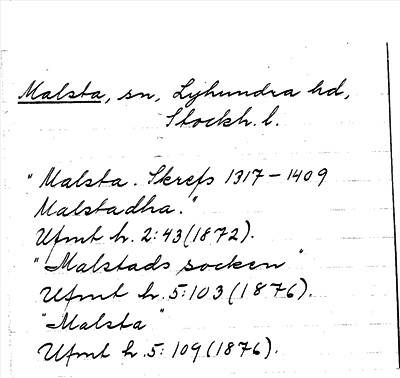 Malsta, sn, Lyhundra hd,
Stockh. l.
"Malsta. Skrefs 1317-1409
Malstadha."
Ufmt h. 2:43 (1872).
"Malstads socken"
Ufmt h. 5:103 (1876).
"Malsta"
Ufmt h. 5:109 (1876).